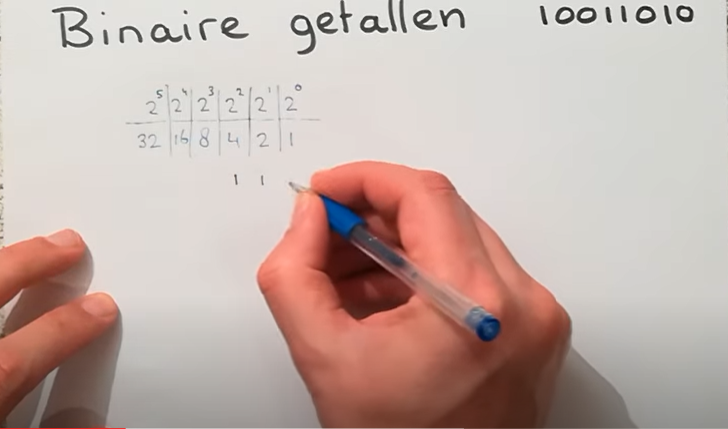 Binaire getallen 10011010
2⁵ 2⁴ 2³ 2² 2¹ 2⁰
32 16 8 4 2 1
1 1